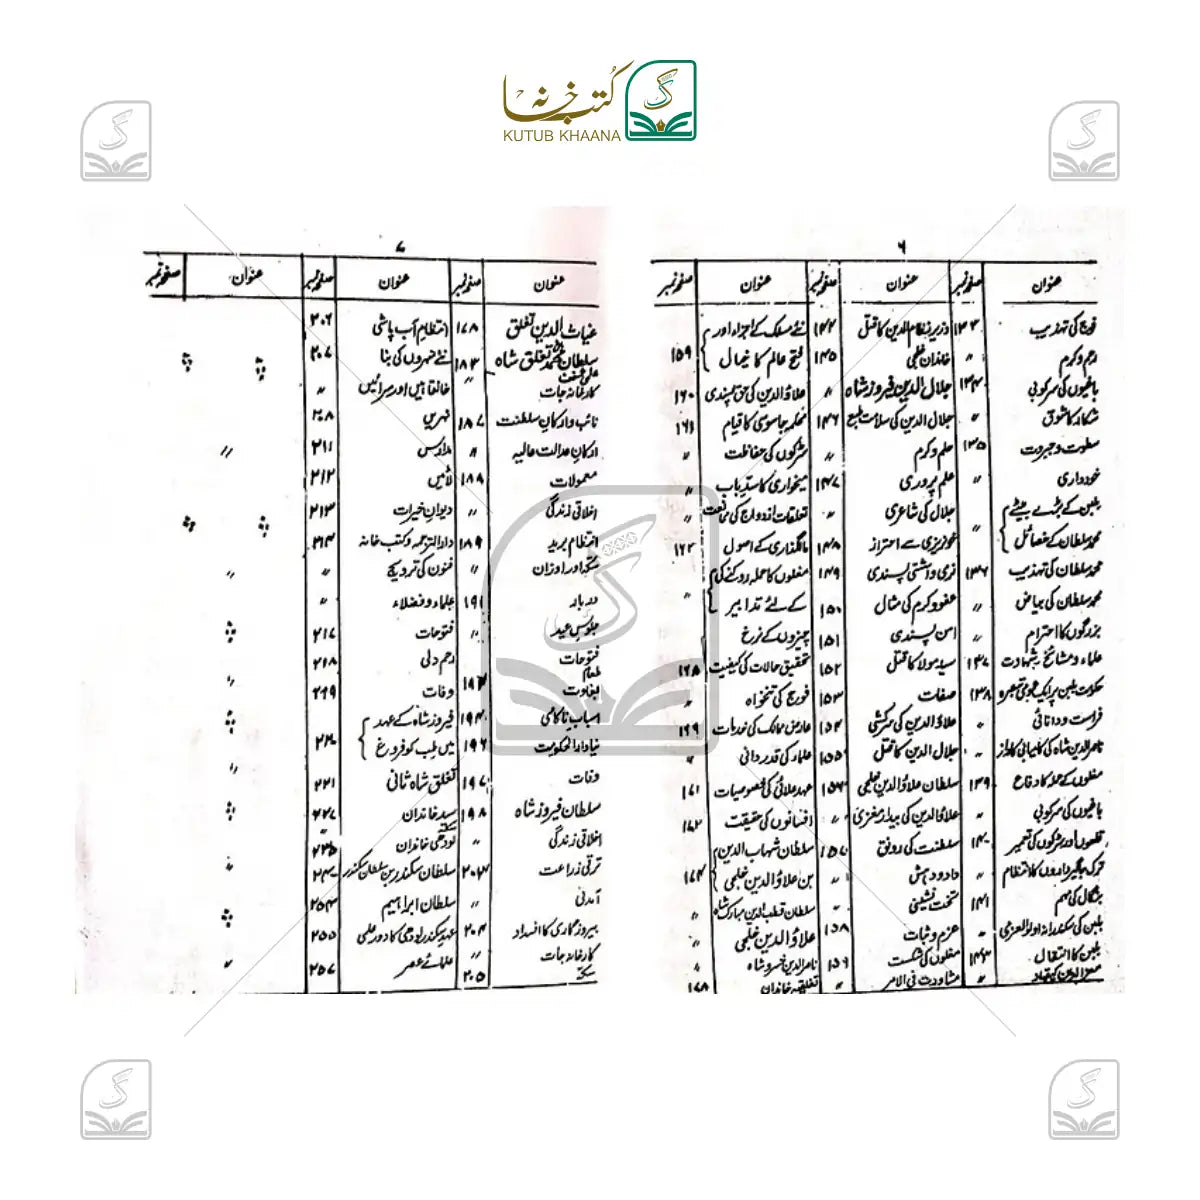 کتب خانہ
KUTUB KHAANA
۶
عنوان
صفحہ نمبر
عنوان
صفحہ نمبر
عنوان
صفحہ نمبر
فوج کی تہذیب
رحم و کرم
باغیوں کی سرکوبی
شکار کا شوق
سطوت و جبروت
خودداری
بلبن کے بڑے بیٹے
محمد سلطان کے خصائل
محمد سلطان کی تہذیب
محمد سلطان کی بیاض
بزرگوں کا احترام
علماء و مشائخ
فراست و دانائی
مغلوں کے حملہ کا دفاع
باغیوں کی سرکوبی
قلعوں اور سڑکوں کی تعمیر
ترک جاگیرداروں کا انتظام
بنگال کی مہم
بلبن کا انتقال
۱۳۴ وزیر نظام الدین کا قتل
〃 خاندان خلجی
جلال الدین فیروز شاہ
〃 جلال الدین کی سلامت طبع
۱۳۵ حلم و کرم
〃 علم پروری
جلال کی شاعری
〃 خونریزی سے احتراز
۱۳۶ نرمی و آشتی پسندی
〃 عفو و کرم کی مثال
〃 امن پسندی
۱۳۷ سید مولا کا قتل
۱۳۸ صفات
〃 علاؤ الدین کی سرکشی
〃 جلال الدین کا قتل
۱۳۹ سلطان علاؤ الدین خلجی
〃 علاؤ الدین کی بیدار مغزی
۱۴۰ سلطنت کی رونق
داد و دہش
۱۴۱ تخت نشینی
〃 عزم و ثبات
۱۴۳ مغلوں کی شکست
〃 مشاورت فی الامر
۱۴۴ نئے مسلک کے اجراء اور
۱۴۵ فتح عالم کا خیال ۱۵۹
〃 علاؤ الدین کی حق پسندی ۱۶۰
۱۴۶ محکمہ جاسوسی کا قیام ۱۶۱
〃 سڑکوں کی حفاظت 〃
۱۴۷ میخواری کا سدباب 〃
〃 تعلقات ازدواج کی ممانعت 〃
۱۴۸ مالگذاری کے اصول ۱۶۴
۱۴۹ مغلوں کا حملہ روکنے
۱۵۰ کے لئے تدابیر 〃
۱۵۱ چیزوں کے نرخ
۱۵۲ تحقیق حالات کی کیفیت ۱۶۸
۱۵۳ فوج کی تنخواہ 〃
۱۵۴ عارض ممالک کی خدمات ۱۶۹
۱۵۵ علماء کی قدردانی 〃
۱۵۶ عہد علائی کی خصوصیات ۱۷۱
〃 افسانوں کی حقیقت ۱۷۲
۱۵۷ سلطان شہاب الدین
〃 بن علاؤ الدین خلجی ۱۷۴
〃 سلطان قطب الدین مبارک شاہ 〃
۱۵۸ علاؤ الدین خلجی
۱۵۹ ناصر الدین خسرو شاہ 〃
〃 تغلقیہ خاندان ۱۷۸
۷
عنوان
صفحہ نمبر
عنوان
صفحہ نمبر
عنوان
صفحہ نمبر
غیاث الدین تغلق ۱۷۸
سلطان محمد تغلق شاہ ۱۸۳
کارخانہ جات 〃
نائب و ارکان سلطنت ۱۸۷
ارکان عدالت عالیہ 〃
معمولات ۱۸۸
اخلاقی زندگی 〃
انتظام برید ۱۸۹
سکہ اور اوزان 〃
دربار ۱۹۱
جلوس عید 〃
فتوحات
طعام
بغاوت ۱۹۳
اسباب ناکامی ۱۹۴
نیا دارالحکومت ۱۹۶
وفات ۱۹۷
سلطان فیروز شاہ ۱۹۸
اخلاقی زندگی 〃
ترقی زراعت ۲۰۳
آمدنی 〃
بیروزگاری کا انسداد ۲۰۴
کارخانہ جات 〃
سکے ۲۰۵
انتظام آب پاشی ۲۰۶
نئے شہروں کی بنا ۲۰۷
خانقاہیں اور سرائیں 〃
نہریں ۲۰۸
مدارس ۲۱۱
لاٹیں ۲۱۲
دیوان خیرات ۲۱۳
دارالترجمہ و کتب خانہ ۲۱۴
فنون کی ترویج 〃
علماء و فضلاء 〃
فتوحات ۲۱۷
رحم دلی ۲۱۸
وفات ۲۱۹
فیروز شاہ کے عہد
میں طب کو فروغ ۲۲۰
تغلق شاہ ثانی ۲۲۱
سید خاندان ۲۲۷
لودھی خاندان ۲۳۵
سلطان سکندر بن سلطان
سلطان ابراہیم ۲۵۴
عہد سکندر لودھی کا دور علمی ۲۵۵
علمائے عصر ۲۵۷